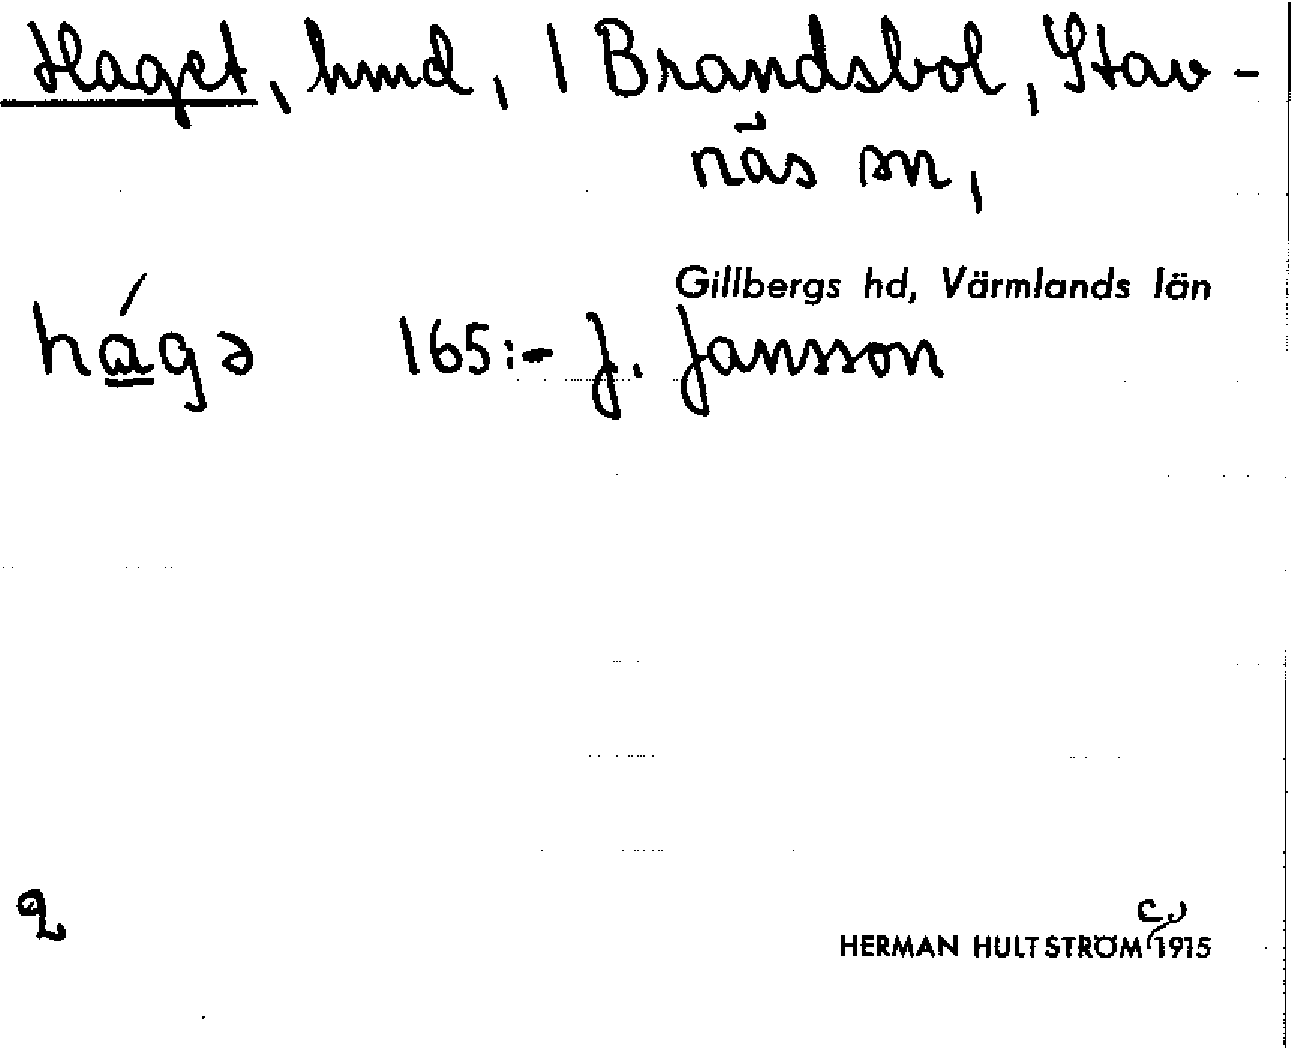 Haget, hmd, 1 Brandsbol, Stav-
näs sn,
Gillbergs hd, Värmlands län
hágə 165:- J. Jansson
2
c.
HERMAN HULTSTRÖM 1915